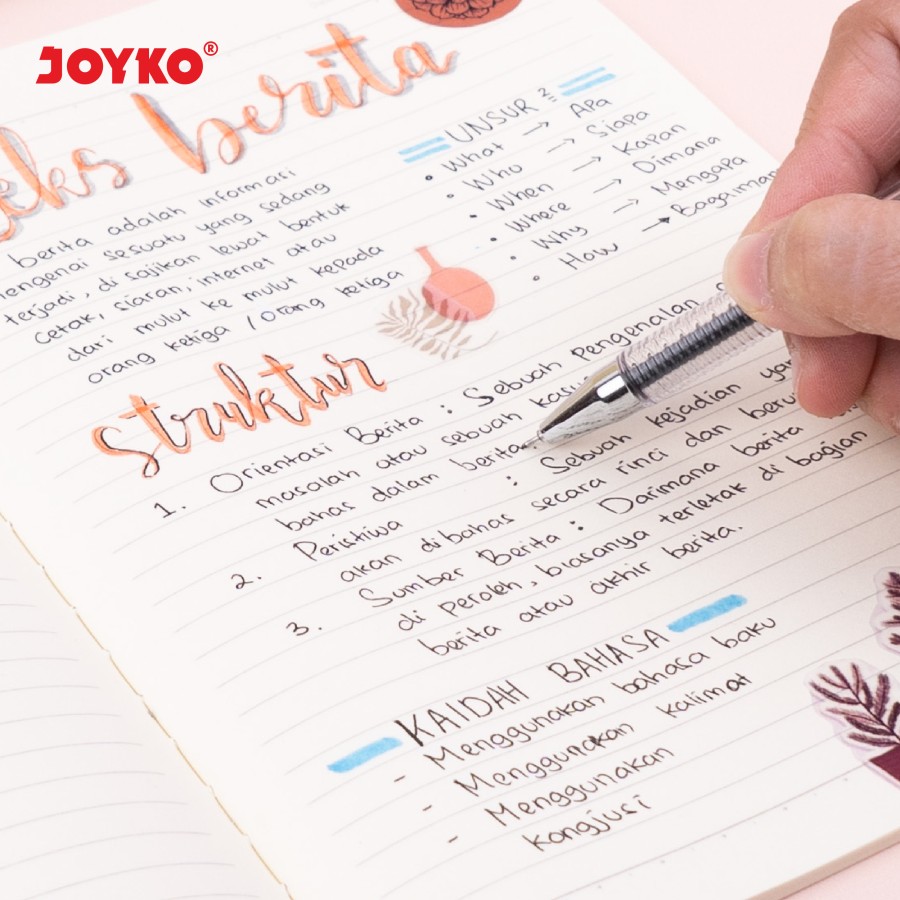 JOYKO®
teks berita
berita adalah informasi
mengenai sesuatu yang sedang
terjadi, di sajikan lewat bentuk
cetak, siaran, internet atau
dari mulut ke mulut kepada
orang ketiga / orang ketiga
UNSUR²
• What → Apa
• Who → Siapa
• When → Kapan
• Where → Dimana
• Why → Mengapa
• How → Bagaimana
Struktur
1. Orientasi Berita : Sebuah Pengenalan
masalah atau sebuah
bahas dalam berita
2. Peristiwa : Sebuah kejadian
akan dibahas secara rinci dan
3. Sumber Berita : Darimana berita
di peroleh, biasanya terletak di bagian
berita atau akhir berita.
KAIDAH BAHASA
- Menggunakan bahasa baku
- Menggunakan kalimat
- Menggunakan
kongjusi